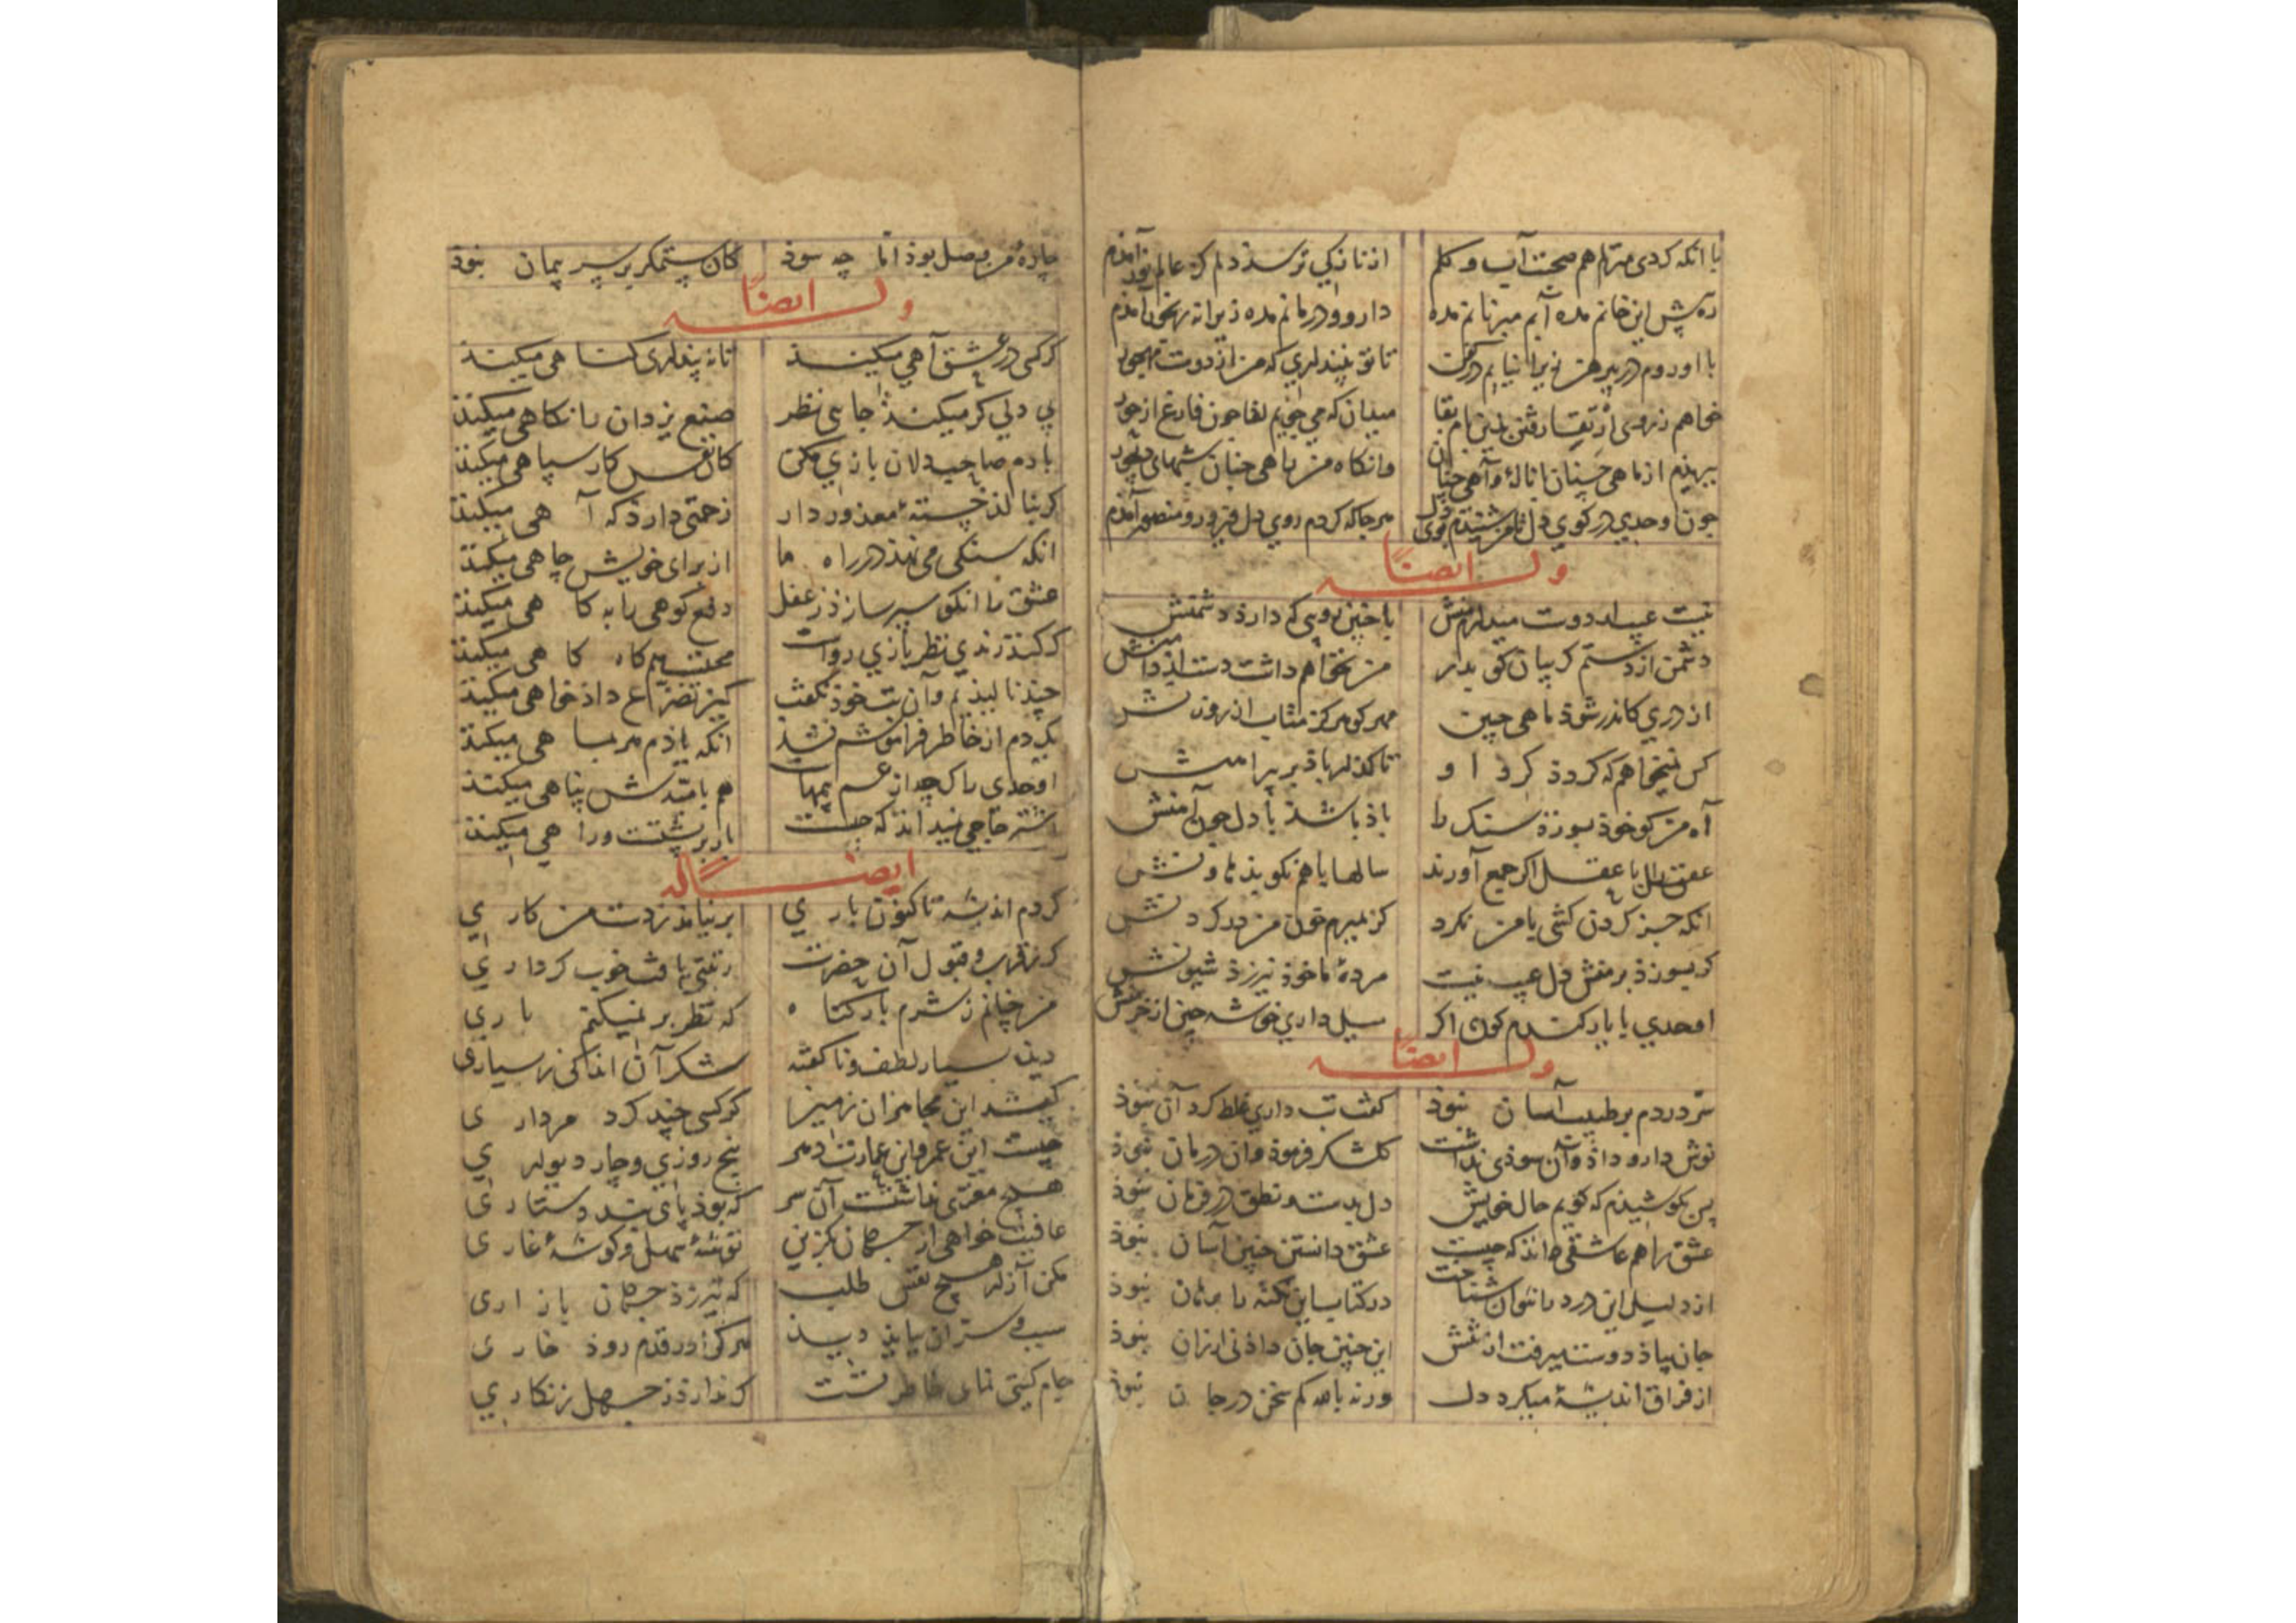 با آنکه کردی منزلم هم صحبت آب و گلم از نازکی ترسد دلم کز عالم نور آمدم
ره پیش این خانم مده آبم مبر نانم مده دارو و درمانم مده زیرا نه رنجور آمدم
با او روم در پیرهن زیرا نیابم در کفن تا تو نپنداری که من از دوست مهجور
خواهم ز روی ارتقا رفتن بدین بام بقا میدان که می جویم لقا چون فارغ از حور
ببریدم از ماهی چنان با ناله و آهی چنان وانگاه من راهی چنان شبهای دیجور
چون اوحدی در کوی دل هر جا که کردم روی دل منصور آمدم
وله ایضاً
نیست عیب ار دوست میدارم منش با چنین رویی که دارد دشمنش
دشمن از دستم گریبان گو بدر من نخواهم داشت دست از دامنش
از دری کاندر شود ماهی چنین مهر گو هرگز متاب از روزنش
کس نمیخواهم که گردد گرد او تا گذر بر باد پیرامنش
آه من کو خود بسوزد سنگ را باد باشد با دل چون آهنش
عشق را با عقل اگر جمع آورند سالها با هم نکوبد هاونش
آنکه جز گردن کشی با من نکرد گر بمیرم خون من در گردنش
گر بسوزد بر منش دل عیب نیست مرده ما خود نیرزد شیونش
اوحدی با یار گندم گون اگر میل داری خوشه چین از خرمنش
وله ایضاً
سر دردم بر طبیب آسان نبود گفت تب داری غلط کرد آن نبود
نوش دارو داد و آن سودی نداشت گل شکر فرمود و آن درمان نبود
پس بکوشیدم که گویم حال خویش دل بدست و نطق در فرمان نبود
عشق را هم عاشقی داند که چیست عشق دانستن چنین آسان نبود
از دلیل این درد را نتوان شناخت در کتاب این نکته را برهان نبود
جان بیاد دوست میرفت از تنش این چنین جان دادنی ارزان نبود
از فراق اندیشه میکرد دل ورنه بالله کم سخن در جان نبود
چاره من وصل بود اما چه سود کان ستمگر بر سر پیمان نبود
وله ایضاً
گر کسی در عشق آهی میکند تا نه پنداری گناهی میکند
بی دلی گر میکند جایی نظر صنع یزدان را نگاهی میکند
با دم صاحبدلان بازی مکن کان نفس کار سپاهی میکند
گر بنالد خسته معذور دار زحمتی دارد که آهی میکند
آنکه سنگی می نهد در راه ما از برای خویش چاهی میکند
عشق را آنکو سپر سازد ز عقل دفع کوهی را به کاهی میکند
گر کند رندی نظر بازی رواست محتسب هم گاه گاهی میکند
چند نالیدیم و آن بت خود نگفت کین تضرع دادخواهی میکند
یک دم از خاطر فراموشم نشد آنکه یادم هر بماهی میکند
اوحدی را گر چه از غم بیمهاست هم بامیدش پناهی میکند
اشتر حاجی نمیداند که چیست بار بر پشتست و راهی میکند
ایضاً له
کردم اندیشه تا کنون باری بر نیامد ز دست من کاری
کز قرب و قبول آن حضرت رتبتی یافت خوب کرداری
من چنانم ز شرم بار گناه که نظر بر نمیکنم باری
دیده بسیار لطف و ناگفته شکر آن اندکی ز بسیاری
کی کشد این مجاهزان ز میز کرکسی چند گرد مرداری
چیست این عمر و این عمارت دهر پنج روزی و چار دیواری
هیچ مغزی نداشتست آن سر که بود پای بند دستاری
عافیت خواهی از جهان بگزین توشه سهل و گوشه غاری
مکن آزار هیچ نفس طلب که نیرزد جهان بازاری
سبب و سر آن بباید دید هر کرا در قدم رود خاری
جام گیتی نمای خاطر تست گر ندارد ز جهل زنگاری